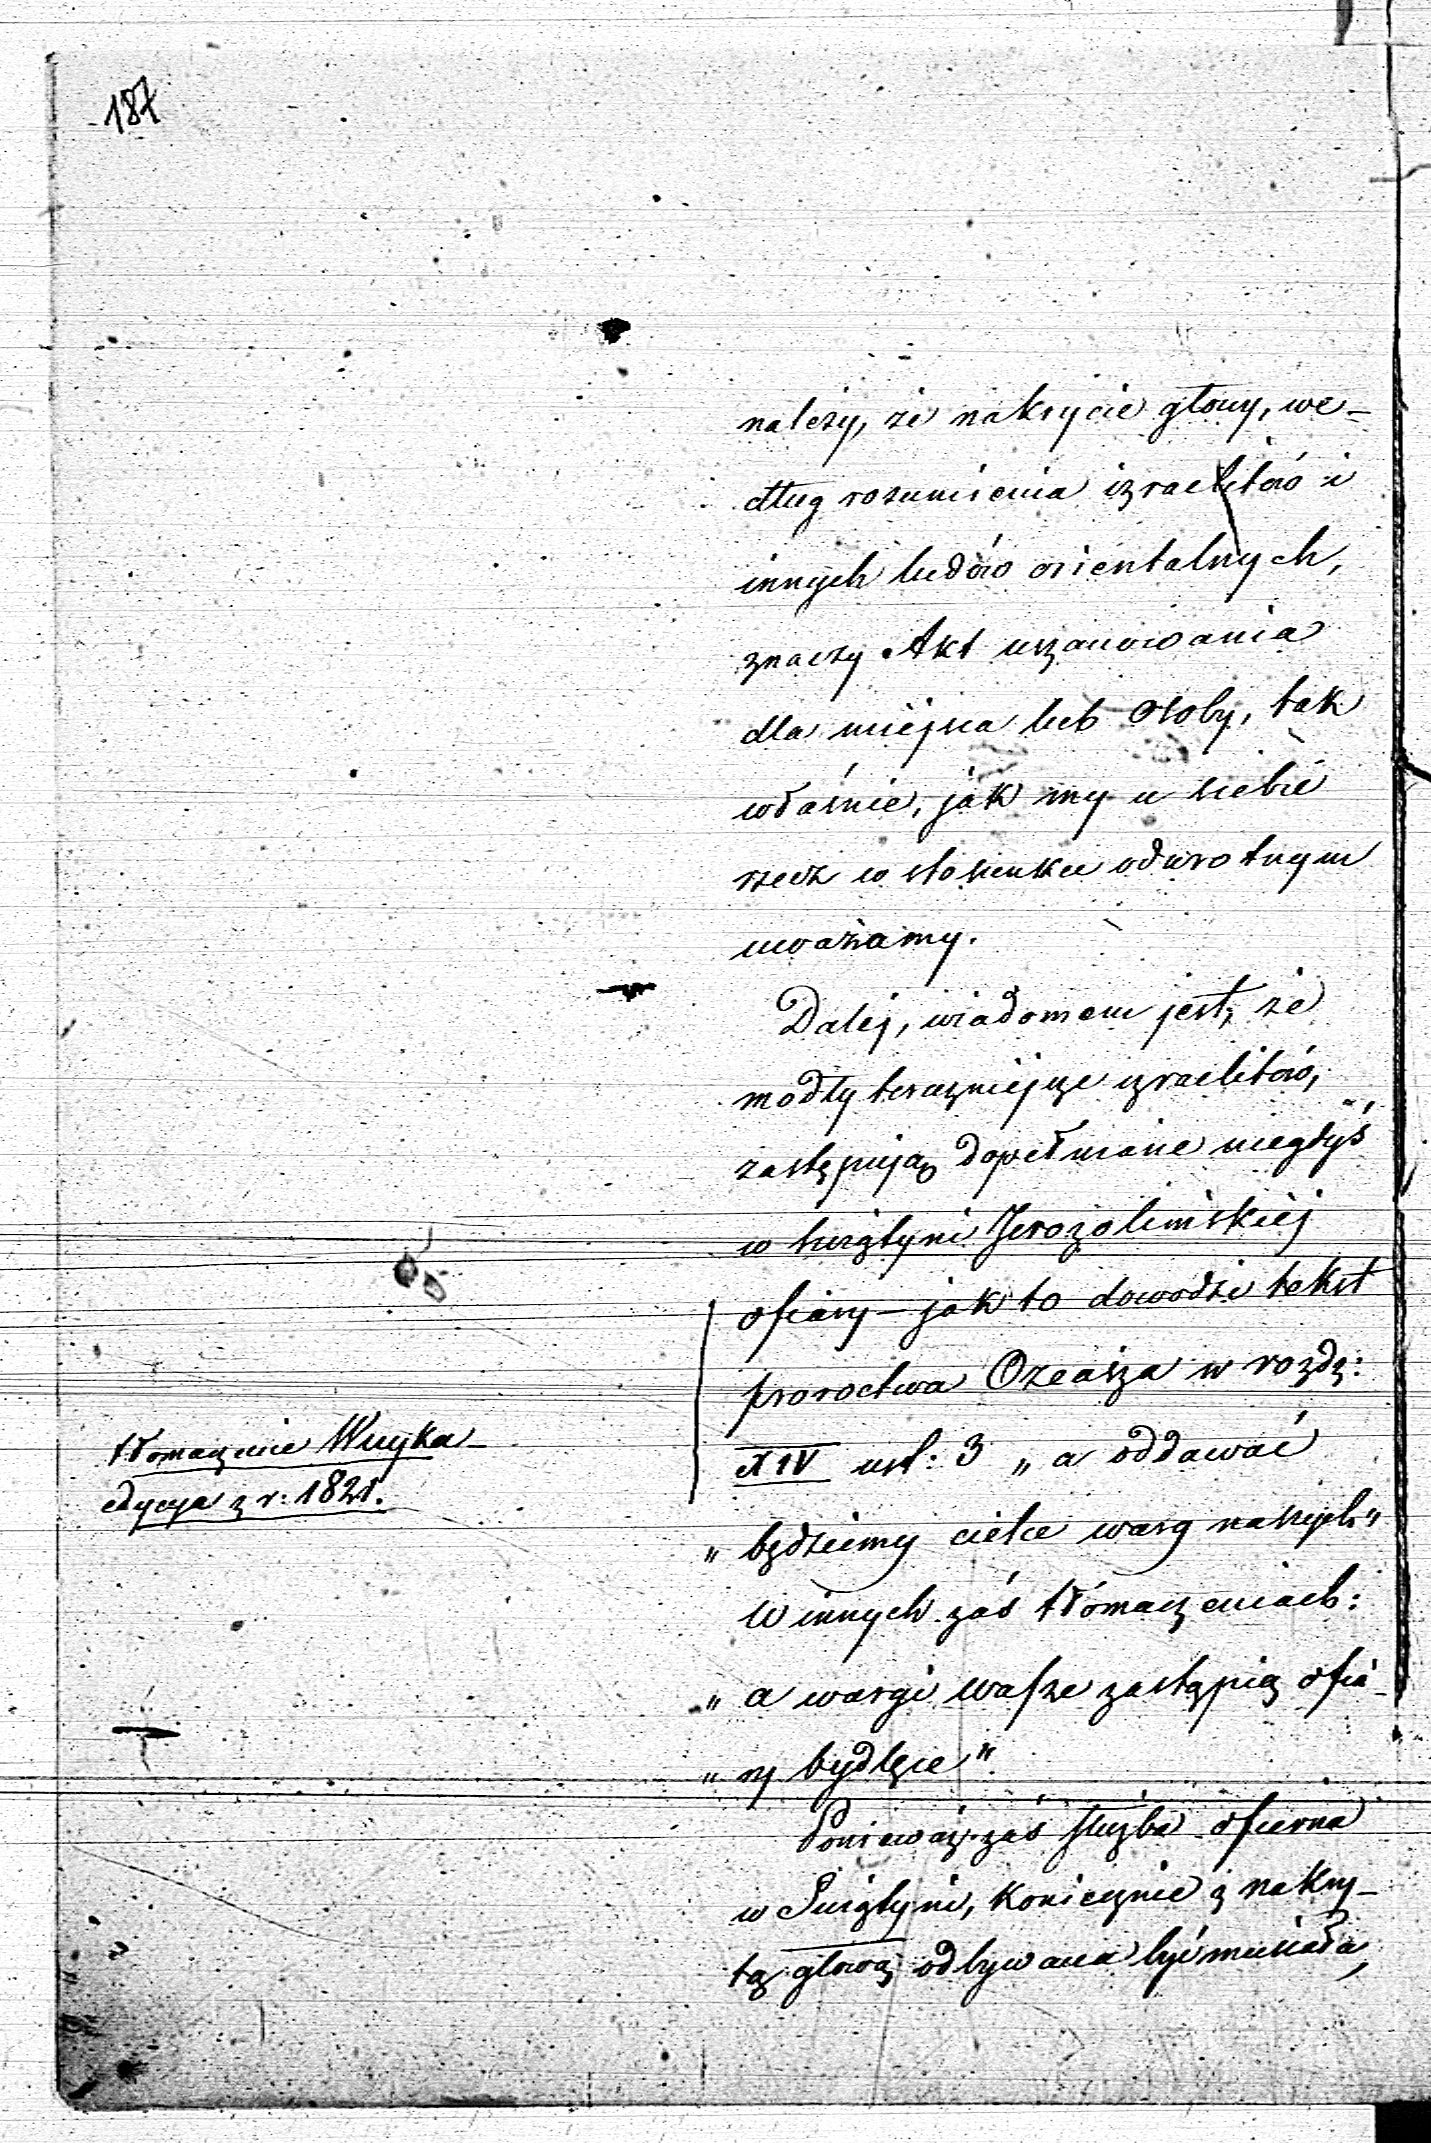 187
należy, że nakrycie głowy, we-
dług rozumienia izraelitów i
innych ludów orientalnych,
znaczy Akt uszanowania
dla miejsca lub Osoby, tak
właśnie, jak my u siebie
rzecz w stosunku odwrotnym
uważamy.
Daléj, wiadomem jest, że
modły teraźniejsze izraelitów,
zastępują dopełniane niegdyś
w świątyni Jerozolimskiéj
ofiary – jak to dowodzi tekst
proroctwa Ozeasza w rozdz:
XIV ust: 3 „a oddawać
„będziemy cielce warg naszych"
W innych zaś tłómaczeniach:
„a wargi wasze zastąpią ofia-
„ry bydlęce".
Ponieważ zaś służba ofierna
w Świątyni, koniecznie z nakry-
tą głową odbywana być musiała,
tłomaczenie Wujka-
edycya z r: 1821.